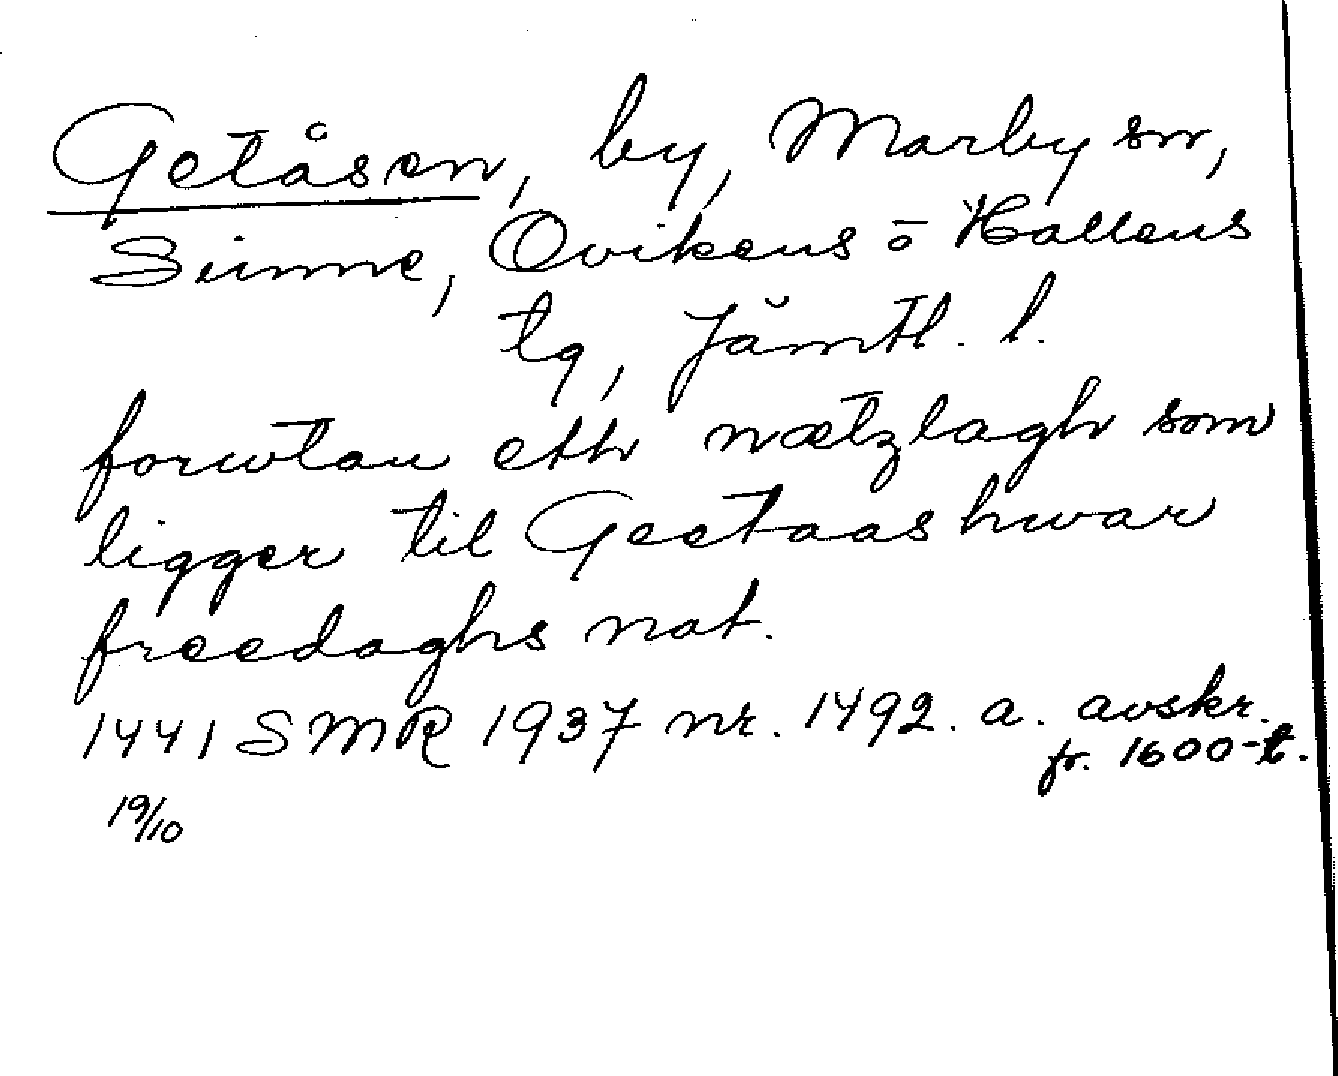 Getåsen, by, Marby sn,
Sunne, Ovikens o Hallens
tg, Jämtl. l.
forwtan eth nætzlagh som
ligger til Geetaas hwar
freedaghs nat.
1441 SMR 1937 nr. 1492. a. avskr.
fr. 1600-t.
19/10